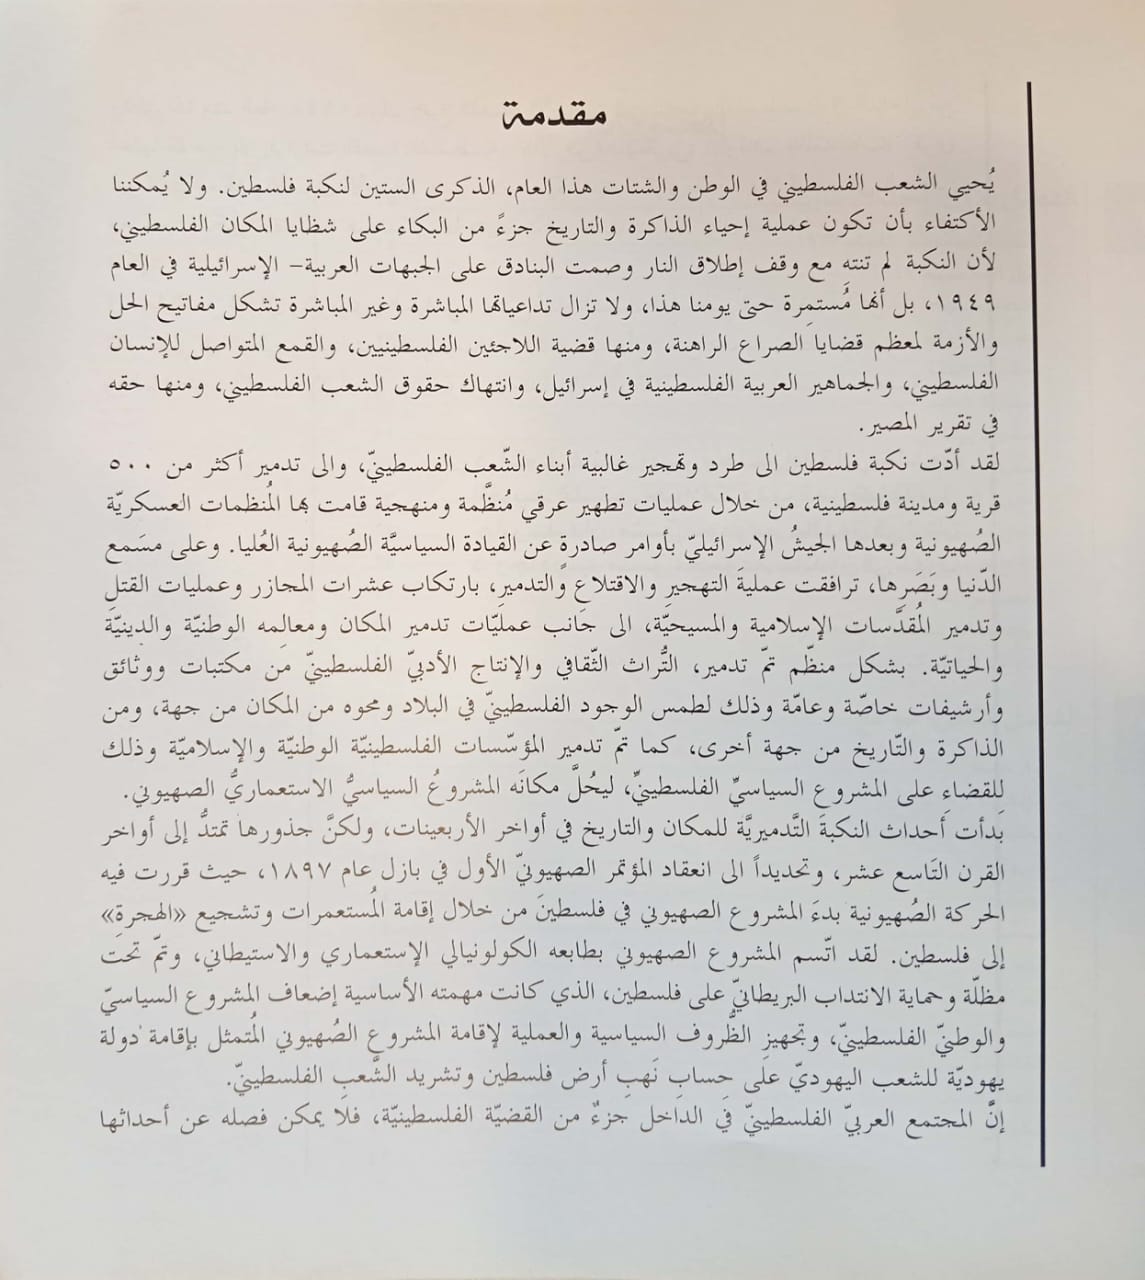 مقدمة
يُحيي الشعب الفلسطيني في الوطن والشتات هذا العام، الذكرى الستين لنكبة فلسطين. ولا يُمكننا
الأكتفاء بأن تكون عملية إحياء الذاكرة والتاريخ جزءً من البكاء على شظايا المكان الفلسطيني،
لأن النكبة لم تنتهِ مع وقف إطلاق النار وصمت البنادق على الجبهات العربية– الإسرائيلية في العام
١٩٤٩، بل أنها مُستمِرة حتى يومنا هذا، ولا تزال تداعياتها المباشرة وغير المباشرة تشكل مفاتيح الحل
والأزمة لمعظم قضايا الصراع الراهنة، ومنها قضية اللاجئين الفلسطينيين، والقمع المتواصل للإنسان
الفلسطيني، والجماهير العربية الفلسطينية في إسرائيل، وانتهاك حقوق الشعب الفلسطيني، ومنها حقه
في تقرير المصير.
لقد أدّت نكبة فلسطين الى طرد وتهجير غالبية أبناء الشّعب الفلسطينيّ، والى تدمير أكثر من ٥٠٠
قرية ومدينة فلسطينية، من خلال عمليات تطهير عرقي مُنظَّمة ومنهجية قامت بها المُنظمات العسكريّة
الصُهيونية وبعدها الجيشُ الإسرائيليّ بأوامر صادرةٍ عن القيادة السياسيَّة الصُهيونية العُليا. وعلى مسَمع
الدّنيا وبَصَرِها، ترافقت عمليةَ التهجيرِ والاقتلاعِ والتدميرِ، بارتكاب عشرات المجازر وعمليات القتلِ
وتدمير المُقدَّسات الإسلامية والمسيحيّة، الى جَانب عمليّات تدمير المكان ومعالِمه الوطنيّة والدينيّة
والحياتيّة. بشكل منظّم تمّ تدمير، التُّراث الثّقافي والإنتاج الأدبيّ الفلسطينيّ من مكتبات ووثائق
وأرشيفات خاصّة وعامّة وذلك لطمس الوجود الفلسطينيّ في البلاد ومحوه من المكان من جهة، ومن
الذاكرة والتّاريخ من جهة أخرى، كما تمّ تدمير المؤسّسات الفلسطينيّة الوطنيّة والإسلاميّة وذلك
للقضاء على المشروع السياسيِّ الفلسطينيِّ، ليحُلَّ مكانَه المشروعُ السياسيُّ الاستعماريُّ الصهيوني.
بَدأت أَحداث النكبةَ التَّدميريَّة للمكان والتاريخ في أواخر الأربعينات، ولكنَّ جذورها تمتدُّ إلى أواخر
القرن التَاسع عشر، وتحديداً الى انعقاد المؤتمر الصهيونيّ الأول في بازل عام ١٨٩٧، حيث قررت فيه
الحركة الصُهيونية بدءَ المشروع الصهيوني في فلسطينَ من خلال إقامة المُستعمرات وتشجيع «الهجرةِ»
إلى فلسطين. لقد اتّسم المشروع الصهيوني بطابعه الكولونيالي الإستعماري والاستيطاني، وتمّ تحت
مظلّة وحماية الانتداب البريطانيّ على فلسطين، الذي كانت مهمته الأساسية إضعاف المشروع السياسيّ
والوطنيّ الفلسطينيّ، وتجهيزِ الظُّروف السياسية والعملية لإقامة المشروع الصُهيوني المُتمثل بإقامة دولة
يهوديّة للشعب اليهوديّ على حِسابِ نَهبِ أرض فلسطين وتشريد الشَّعبِ الفلسطينيّ.
إنَّ المجتمع العربيّ الفلسطينيّ في الداخل جزءٌ من القضيّة الفلسطينيّة، فلا يمكن فصله عن أحداثها